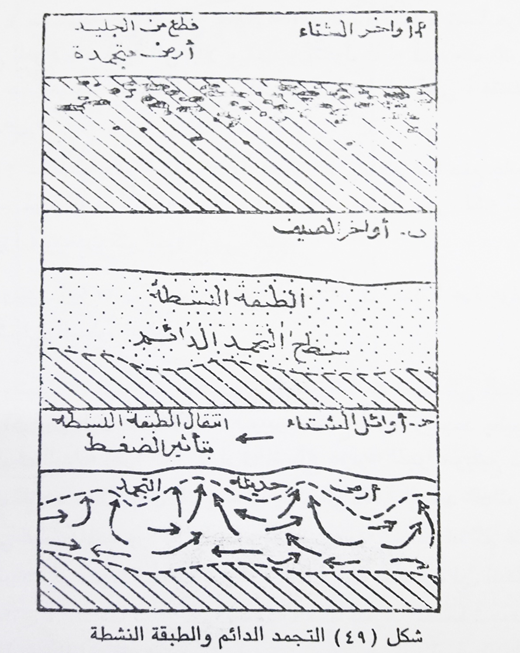 أ أواخر الشتاء
قطع من الجليد
أرض متجمدة
ب- أواخر الصيف
الطبقة النشطة
سطح التجمد الدائم
حـ- أوائل الشتاء
انتقال الطبقة النشطة
بتأثير الضغط
أرض حديثة التجمد
شكل (٤٩) التجمد الدائم والطبقة النشطة